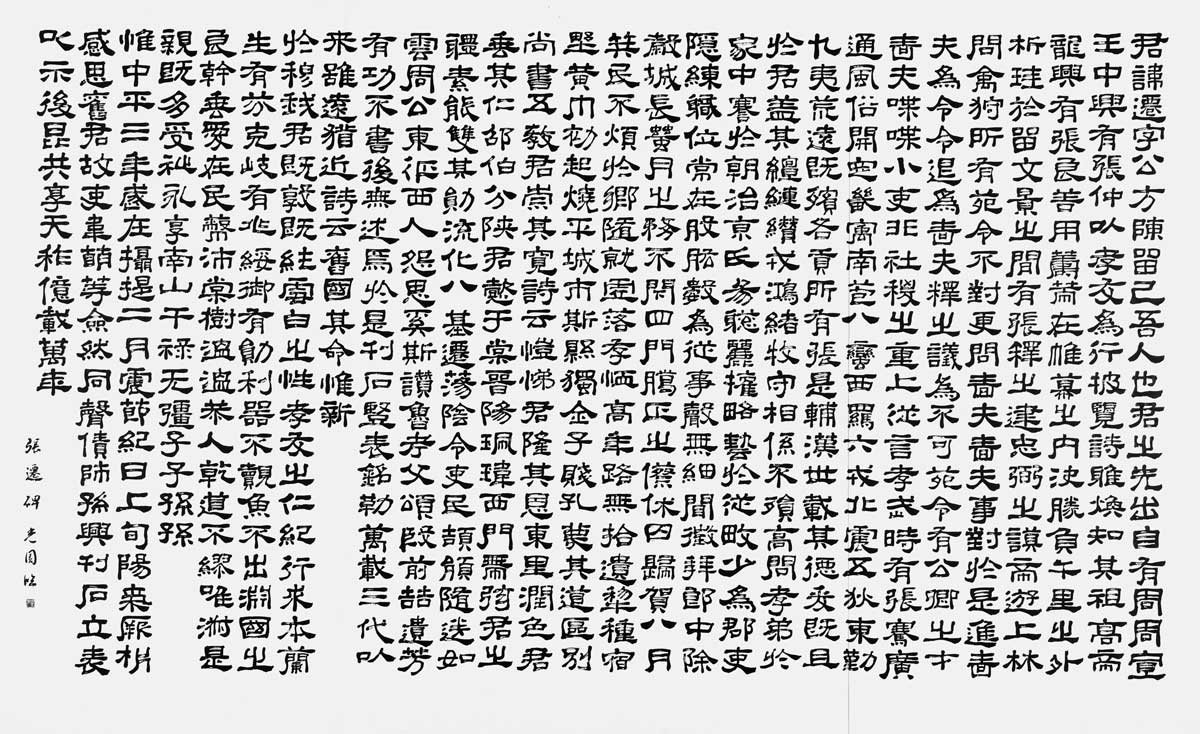 君諱遷字公方陳留己吾人也君之先出自有周周宣
王中興有張仲以孝友為行披覽詩雅煥知其祖高帝
龍興有張良善用籌策在帷幕之內決勝負千里之外
析珪於留文景之間有張釋之建忠弼之謨帝遊上林
問禽狩所有苑令不對更問嗇夫嗇夫事對於是進嗇
夫為令令退為嗇夫釋之議為不可苑令有公卿之才
嗇夫喋喋小吏非社稷之重上從言孝武時有張騫廣
通風俗開定畿寓南苞八蠻西羈六戎北震五狄東勤
九夷荒遠既殯各貢所有張是輔漢世載其德爰既且
於君蓋其繵縺纘戎鴻緒牧守相係不殞高問孝弟於
家中謇於朝治京氏易聰麗權略藝於從畋少為郡吏
隱練職位常在股肱數為從事聲無細聞徵拜郎中除
穀城長蠶月之務不閉四門臘正之僚休囚歸賀八月
筭民不煩於鄉隨就虛落存恤高年路無拾遺犁種宿
野黃巾初起燒平城市斯縣獨全子賤孔蔑其道區別
尚書五教君崇其寬詩云愷悌君隆其恩東里潤色君
垂其仁邵伯分陝君懿于棠晉陽珮瑋西門帶弦君之
體素能雙其勛流化八基遷蕩陰令吏民頡頏隨送如
雲周公東征西人怨思奚斯讚魯考父頌殷前喆遺芳
有功不書後無述焉於是刊石豎表銘勒萬載三代以
來雖遠猶近詩云舊國其命惟新
於穆我君既敦既純雪白之性孝友之仁紀行求本蘭
生有芬克岐有兆綏御有勛利器不覿魚不出淵國之
良幹垂愛在民蔽沛棠樹溫溫恭人乾道不繆唯淑是
親既多受祉永享南山干祿无疆子子孫孫
惟中平三年歲在攝提二月震節紀日上旬陽氣厥析
感思舊君故吏韋萌等僉然同聲賃師孫興刊石立表
以示後昆共享天祚億載萬年
張遷碑 臨